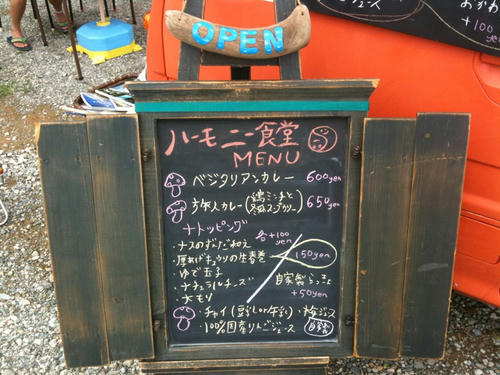 OPEN
ハーモニー食堂
MENU
ベジタリアンカレー 600yen
旅人カレー(鶏ミンチと 650yen
トッピング 各+100yen
・ナスのずんだ和え
・厚あげキュウリの生春巻 150yen
・ゆで玉子
・ナチュラルチーズ
自家製らっきょ
・大モリ
+50yen
・チャイ(豆乳or牛乳)・梅ジュース
・100%国産りんごジュース
自家製
おかわ
+100
ジュース